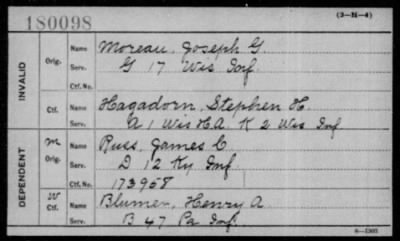 180098
(3-H-4)
INVALID
Orig.
Name Moreau, Joseph G.
Serv. G 17 Wis Inf.
Ctf. No.
Ctf.
Name Hagadorn, Stephen H.
Serv. A 1 Wis H.A. K 2 Wis Inf
DEPENDENT
M
Orig.
Name Russ, James C
Serv. D 12 Ky. Inf
Ctf. No. 173958
W
Ctf.
Name Blumer, Henry A.
Serv. B 47 Pa Inf.